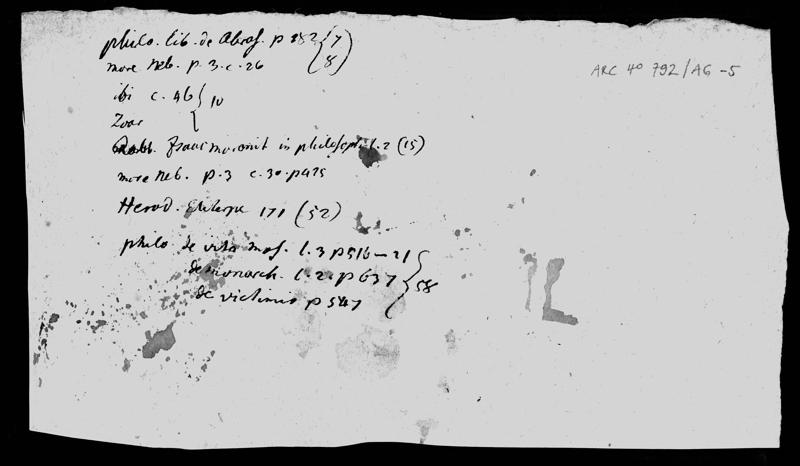 philo. lib. de Abraj. p 282 } 7
more Neb. p. 3. c. 26 { 8 )
ibi c. 46 { 10
Zoar
Rabbi Isaac moronit in philosoph l. 2 (15)
more Neb. p. 3 c. 30. p 425
Herod. Euterpe 171 (52)
philo de vita mos. l. 3 p 516 - 21
de monarch. l. 2. p 637 } 58
de victimis p 547
ARC 4° 792/A6 - 5